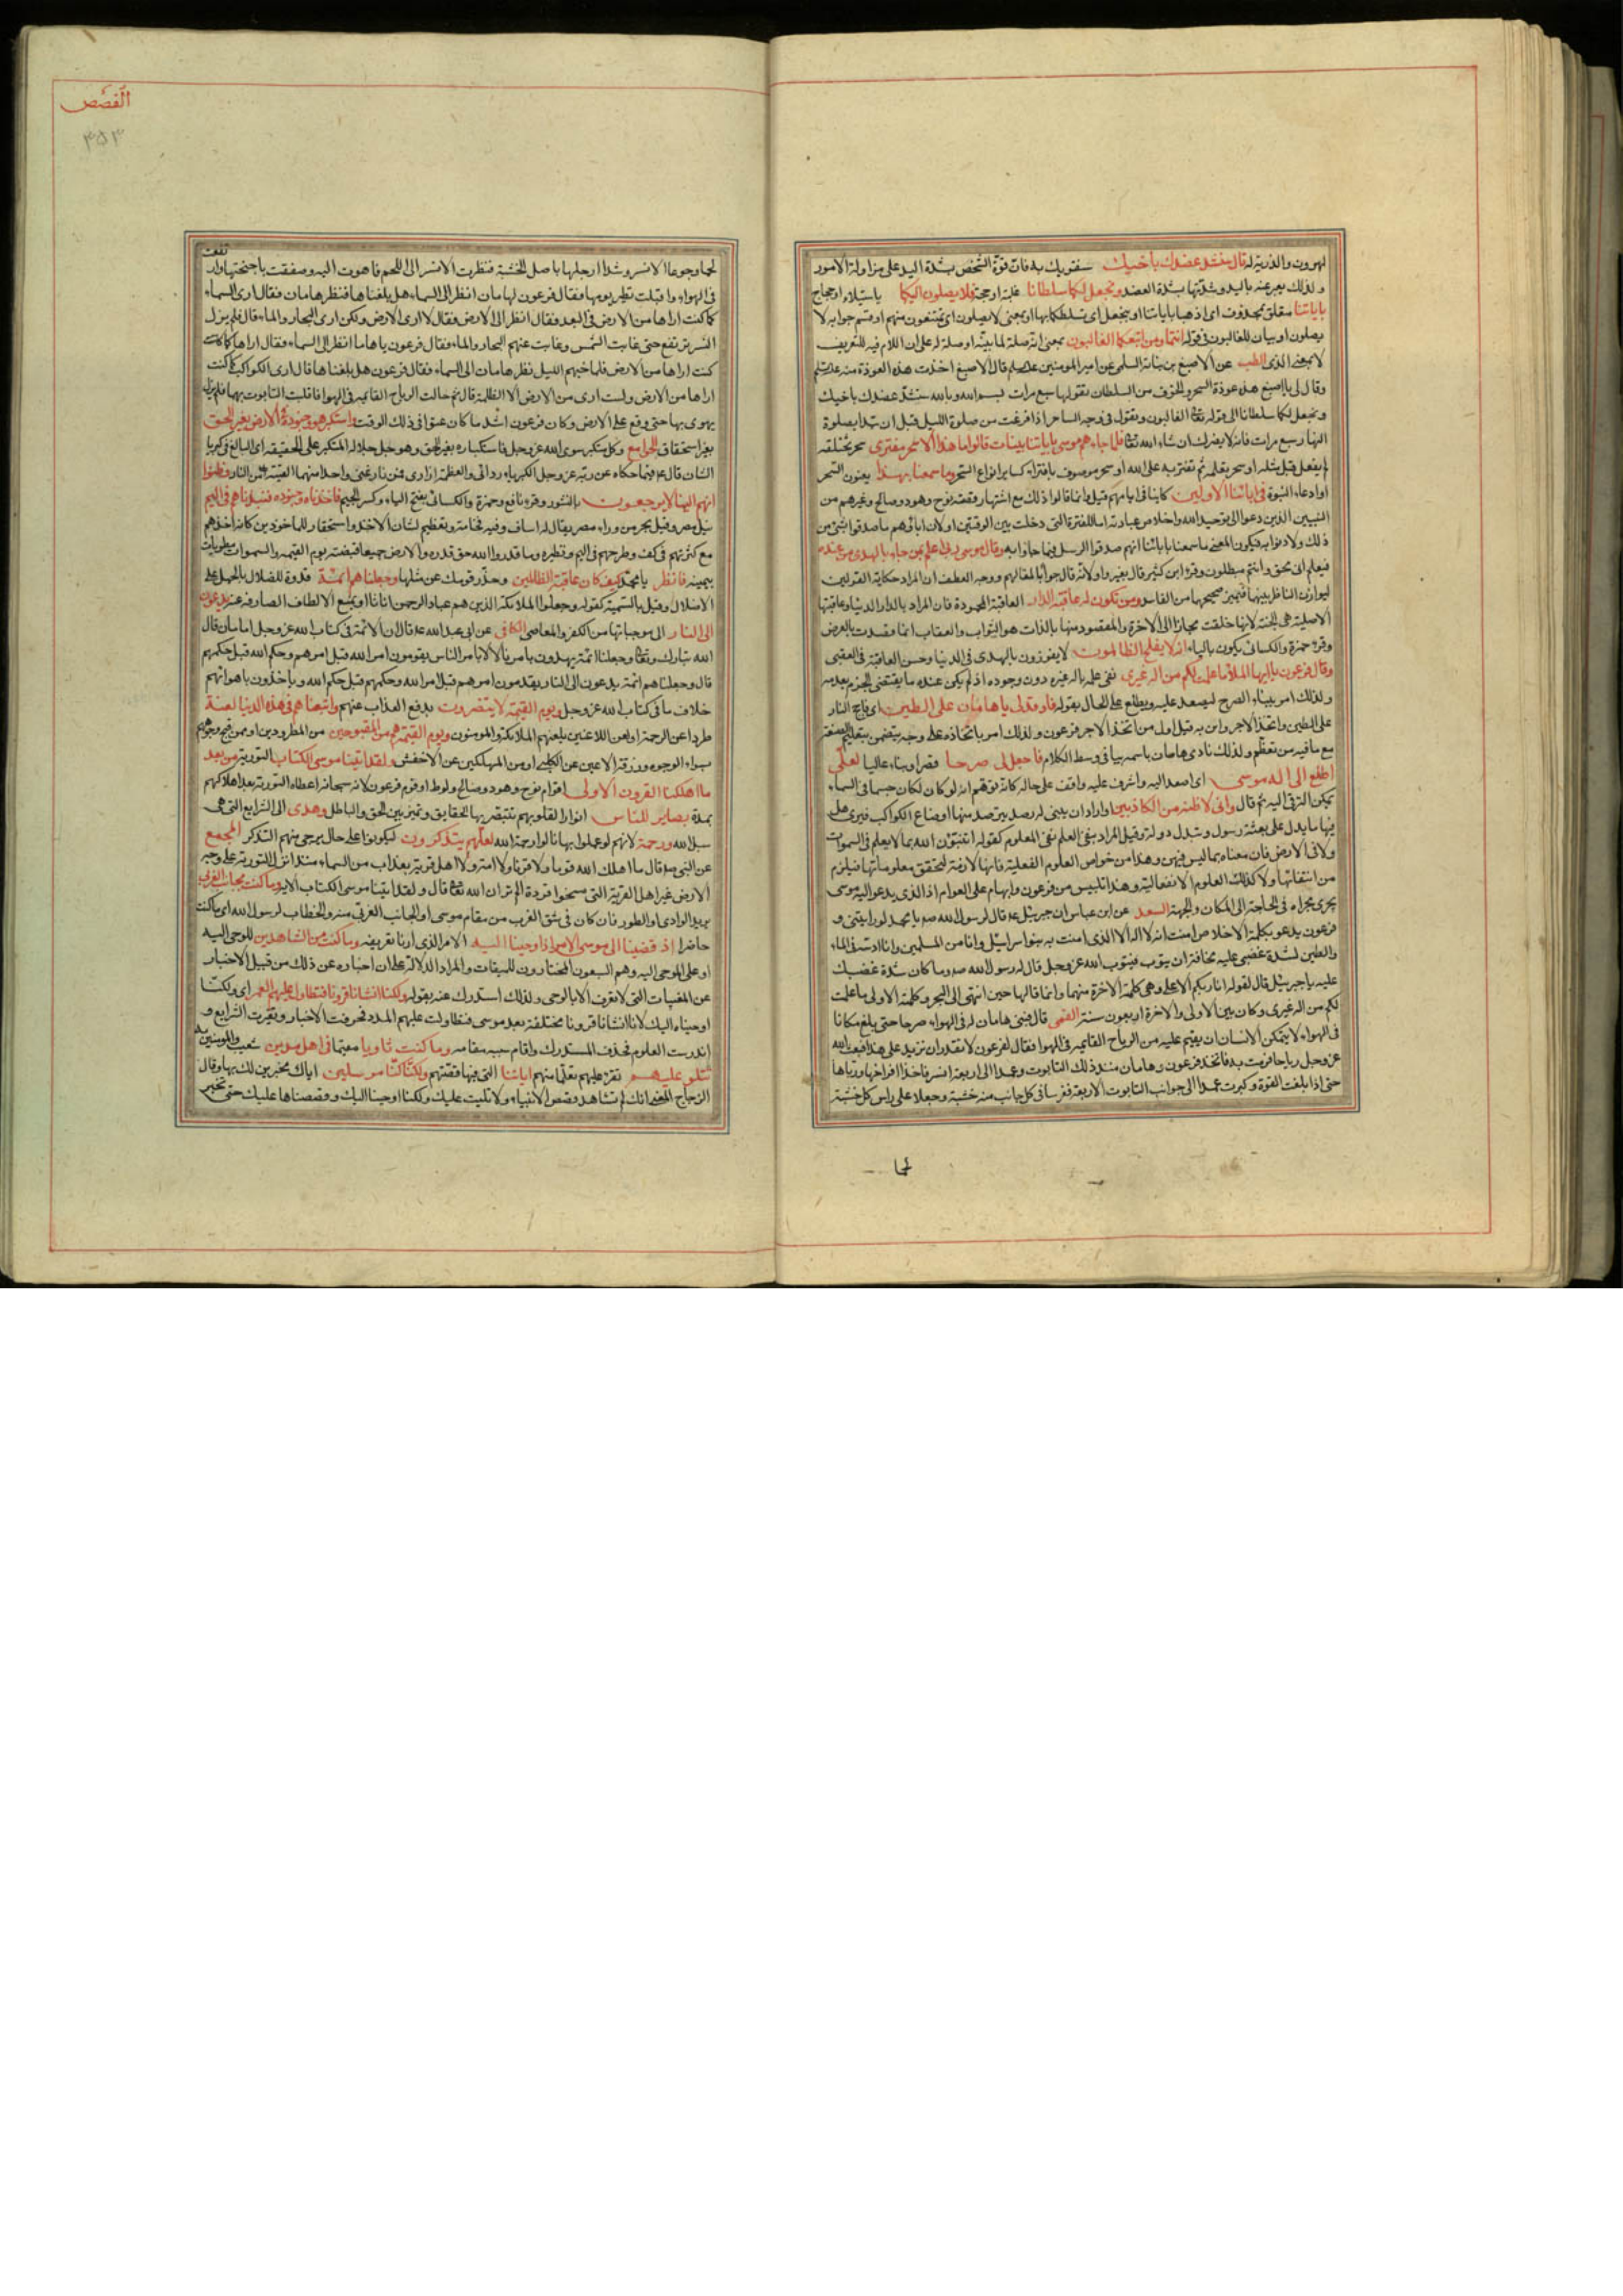 لهرون والذرية له قال سنشد عضدك بأخيك سنقويك به فان قوة الشخص بشدة اليد على مزاولة الامور
ولذلك يعبر عنه باليد وشدتها بشدة العضد ونجعل لكما سلطانا غلبة او حجة فلا يصلون اليكما باستيلاء او حجاج
بآياتنا متعلق بمحذوف اى اذهبا بآياتنا او بنجعل اى نسلطكما بها او بمعنى لا يصلون اى تمتنعون منهم او قسم جوابه لا
يصلون او بيان للغالبون فى قوله انتما ومن اتبعكما الغالبون بمعنى انه صلة لما بينه او صلة له على ان اللام فيه للتعريف
لا بمعنى الذى الطب عن الاصبغ بن نباتة السلمى عن امير المومنين قال الاصبغ اخذت هذه العوذة منه
وقال لى يا اصبغ هذه عوذة السحر والخوف من السلطان تقولها سبع مرات بسم الله وبالله سنشد عضدك باخيك
ونجعل لكما سلطانا الى قوله الغالبون وتقول فى وجه الساحر اذا فرغت من صلوة الليل قبل ان تبدا بصلوة
النهار سبع مرات فانه لا يضرك ان شاء الله فلما جاءهم موسى باياتنا بينات قالوا ما هذا الا سحر مفترى سحر تختلقه
لم يفعل قبل مثله او سحر تعلمه ثم تفتريه على الله او سحر موصوف بافتراء كساير انواع السحر وما سمعنا بهذا يعنون السحر
او ادعاء النبوة فى ابائنا الاولين كاينا فى ايامهم قيل وانما قالوا ذلك مع اشتهار قصة نوح وهود وصالح وغيرهم من
النبيين الذين دعوا الى توحيد الله واخلاص عبادته اما للفترة التى دخلت بين الوقتين او لان اباءهم ما صدقوا بشئ من
ذلك ولا دنوا به فيكون المعنى ما سمعنا باباءنا انهم صدقوا الرسل فيما جاوا به وقال موسى ربى اعلم بمن جاء بالهدى من عنده
فيعلم انى محق وانتم مبطلون وقرا ابن كثير قال بغير واو لانه قال جوابا لمقالهم ووجه العطف ان المراد حكاية القولين
ليوازن الناظر بينهما فيميز صحيحهما من الفاسد ومن تكون له عاقبة الدار العاقبة المحمودة فان المراد بالدار الدنيا وعاقبتها
الاصلية هى الجنة لانها خلقت مجازا الى الاخرة والمقصود منها بالذات هو الثواب والعقاب انما قصدت بالعرض
وقرء حمزة والكسائى يكون بالياء انه لا يفلح الظالمون لا يفوزون بالهدى فى الدنيا وحسن العاقبة فى العقبى
وقال فرعون يا ايها الملا ما علمت لكم من اله غيرى نفى علمه باله غيره دون وجوده اذ لم يكن عنده ما يقتضى الجزم بعدمه
ولذلك امر ببناء الصرح ليصعد عليه ويطلع على الحال بقوله فاوقد لى يا هامان على الطين اى فاجج النار
على الطين واتخذ الاجر وابن به قيل اول من اتخذ الاجر فرعون ولذلك امر باتخاذه على وجه يتضمن تعليم الصنعة
مع ما فيه من تعظم ولذلك نادى هامان باسمه بيا فى وسط الكلام فاجعل لى صرحا قصرا وبناء عاليا لعلى
اطلع الى اله موسى اى اصعد اليه واشرف عليه واقف على حاله كانه توهم انه لو كان لكان جسما فى السماء
يمكن الترقى اليه ثم قال وانى لاظنه من الكاذبين واراد ان يبنى له رصد يترصد منها اوضاع الكواكب فيرى هل
فيها ما يدل على بعثة رسول وتبدل دولة وقيل المراد بنفى العلم نفى المعلوم كقوله اتنبئون الله بما لا يعلم فى السموات
ولا فى الارض فان معناه بما ليس فيهن وهذا من خواص العلوم الفعلية فانها لازمة لتحقق معلوماتها فيلزم
من انتفائها ولا كذلك العلوم الانفعالية وهذا تلبيس من فرعون وابهام على العوام اذ الذى يدعو اليه موسى
يجرى مجراه فى الحاجة الى المكان والجهة السعد عن ابن عباس ان جبرئيل قال لرسول الله يا محمد لو رايتنى و
فرعون يدعو بكلمة الاخلاص امنت انه لا اله الا الذى امنت به بنو اسرائيل وانا من المسلمين وانا ادسه فى الماء
والطين لشدة غضبى عليه مخافة ان يتوب فيتوب الله عز وجل قال له رسول الله وما كان شدة غضبك
عليه يا جبرئيل قال لقوله انا ربكم الاعلى وهى كلمة الاخرة منهما وانما قالها حين انتهى الى البحر وكلمته الاولى ما علمت
لكم من اله غيرى وكان بين الاولى والاخرة اربعون سنة القمى قال فبنى هامان له فى الهواء صرحا حتى بلغ مكانا
فى الهواء لا يتمكن الانسان ان يقيم عليه من الرياح القايمه فى الهوا فقال لفرعون لا نقدر ان نزيد على هذا فبعث الله
عز وجل رياحا فرمت به فاتخذ فرعون وهامان عند ذلك التابوت وعمدا الى اربعة انسر فاخذا افراخها وربياها
حتى اذا بلغت القوة وكبرت عمدا الى جوانب التابوت الاربعة فغرسا فى كل جانب منه خشبة وجعلا على راس كل خشبة
لحما
القصص
٣٥٣
لحما وجوعا الانسر وشدا ارجلها باصل الخشبة فنظرت الانسر الى اللحم فاهوت اليه وصفقت باجنحتها وارتفعت
فى الهواء واقبلت تطير يومها فقال فرعون لهامان انظر الى السماء هل بلغناها فنظر هامان فقال ارى السماء
كما كنت اراها من الارض فى البعد فقال انظر الى الارض فقال لا ارى الارض ولكن ارى البحار والماء قال فلم يزل
النسر ترتفع حتى غابت الشمس وغابت عنهم البحار والماء فقال فرعون يا هامان انظر الى السماء فقال اراها كما
كنت اراها من الارض فلما جنهم الليل نظر هامان الى السماء فقال فرعون هل بلغناها قال ارى الكواكب كما كنت
اراها من الارض ولست ارى من الارض الا الظلمة قال ثم حالت الرياح القايمه فى الهوا فاقلبت التابوت بهما فلم يزل
يهوى بهما حتى وقع على الارض وكان فرعون اشد ما كان عتوا فى ذلك الوقت واستكبر هو وجنوده فى الارض بغير الحق
بغير استحقاق الجوامع وكل متكبر سوى الله عز وجل فاستكباره بغير الحق وهو جل جلاله المتكبر على الحقيقة اى البالغ فى كبرياء
الشان قال فيما حكاه عن ربه عز وجل الكبرياء ردائى والعظمة ازارى فمن نازعنى واحدا منهما القيته فى النار وظنوا
انهم الينا لا يرجعون بالنشور وقرء نافع وحمزة والكسائى بفتح الياء وكسر الجيم فاخذناه وجنوده فنبذناهم فى اليم
نيل مصر وقيل بحر من وراء مصر يقال له اساف وفيه فخامة وتعظيم لشان الاخذ واستحقار للماخوذين كانه اخذهم
مع كثرتهم فى كف وطرحهم فى اليم ونظيره وما قدروا الله حق قدره والارض جميعا قبضته يوم القيمه والسموات مطويات
بيمينه فانظر يا محمد كيف كان عاقبة الظالمين وحذر قومك عن مثلها وجعلناهم ائمة قدوة للضلال بالحمل على
الاضلال وقيل بالتسمية كقوله وجعلوا الملائكة الذين هم عباد الرحمن اناثا او بمنع الالطاف الصارفة عنه يدعون
الى النار الى موجباتها من الكفر والمعاصى الكافى عن ابى عبد الله قال ان الائمة فى كتاب الله عز وجل امامان قال
الله تبارك وتعالى وجعلنا ائمة يهدون بامرنا لا بامر الناس يقدمون امر الله قبل امرهم وحكم الله قبل حكمهم
قال وجعلناهم ائمة يدعون الى النار يقدمون امرهم قبل امر الله وحكمهم قبل حكم الله وياخذون باهوائهم
خلاف ما فى كتاب الله عز وجل ويوم القيمة لا ينصرون بدفع العذاب عنهم واتبعناهم فى هذه الدنيا لعنة
طردا عن الرحمة او لعن اللاعنين يلعنهم الملائكة والمومنون ويوم القيمة هم من المقبوحين من المطرودين او ممن قبح وجوههم
بسواد الوجوه وزرقة الاعين عن الكلبى او من المهلكين عن الاخفش ولقد اتينا موسى الكتاب التورية من بعد
ما اهلكنا القرون الاولى اقوام نوح وهود وصالح ولوط او قوم فرعون لانه سبحانه اعطاه التورية بعد اهلاكهم
بمدة بصاير للناس انوارا لقلوبهم تتبصر بها الحقايق وتميز بين الحق والباطل وهدى الى الشرايع التى هى
سبل الله ورحمة لانهم لو عملوا بها نالوا رحمة الله لعلهم يتذكرون ليكونوا على حال يرجى منهم التذكر المجمع
عن النبى قال ما اهلك الله قوما ولا قرنا ولا امة ولا اهل قرية بعذاب من السماء منذ انزل التورية على وجه
الارض غير اهل القرية التى مسخوا قردة الم تر ان الله قال ولقد اتينا موسى الكتاب الاية وما كنت بجانب الغربى
يريد الوادى او الطور فان كان فى شق الغرب من مقام موسى او الجانب الغربى منه والخطاب لرسول الله اى ما كنت
حاضرا اذ قضينا الى موسى الامر اذ اوحينا اليه الامر الذى اردنا تعريفه وما كنت من الشاهدين للوحى اليه
او على الموحى اليه وهم السبعون المختارون للميقات والمراد الدلالة على ان اخباره عن ذلك من قبيل الاخبار
عن المغيبات التى لا تعرف الا بالوحى ولذلك استدرك عنه بقوله ولكنا انشانا قرونا فتطاول عليهم العمر اى ولكنا
اوحيناه اليك لانا انشانا قرونا مختلفة بعد موسى فتطاولت عليهم المدد فحرفت الاخبار وتغيرت الشرايع و
اندرست العلوم فحذف المستدرك واقام سببه مقامه وما كنت ثاويا مقيما فى اهل مدين شعيب والمومنين به
تتلو عليهم تقرء عليهم تعلما منهم اياتنا التى فيها قصتهم ولكنا كنا مرسلين اياك مخبرين لك بها وقال
الزجاج المعنى انك لم تشاهد قصص الانبياء ولا تليت عليك ولكنا اوحينا اليك وقصصناها عليك حتى تخبر